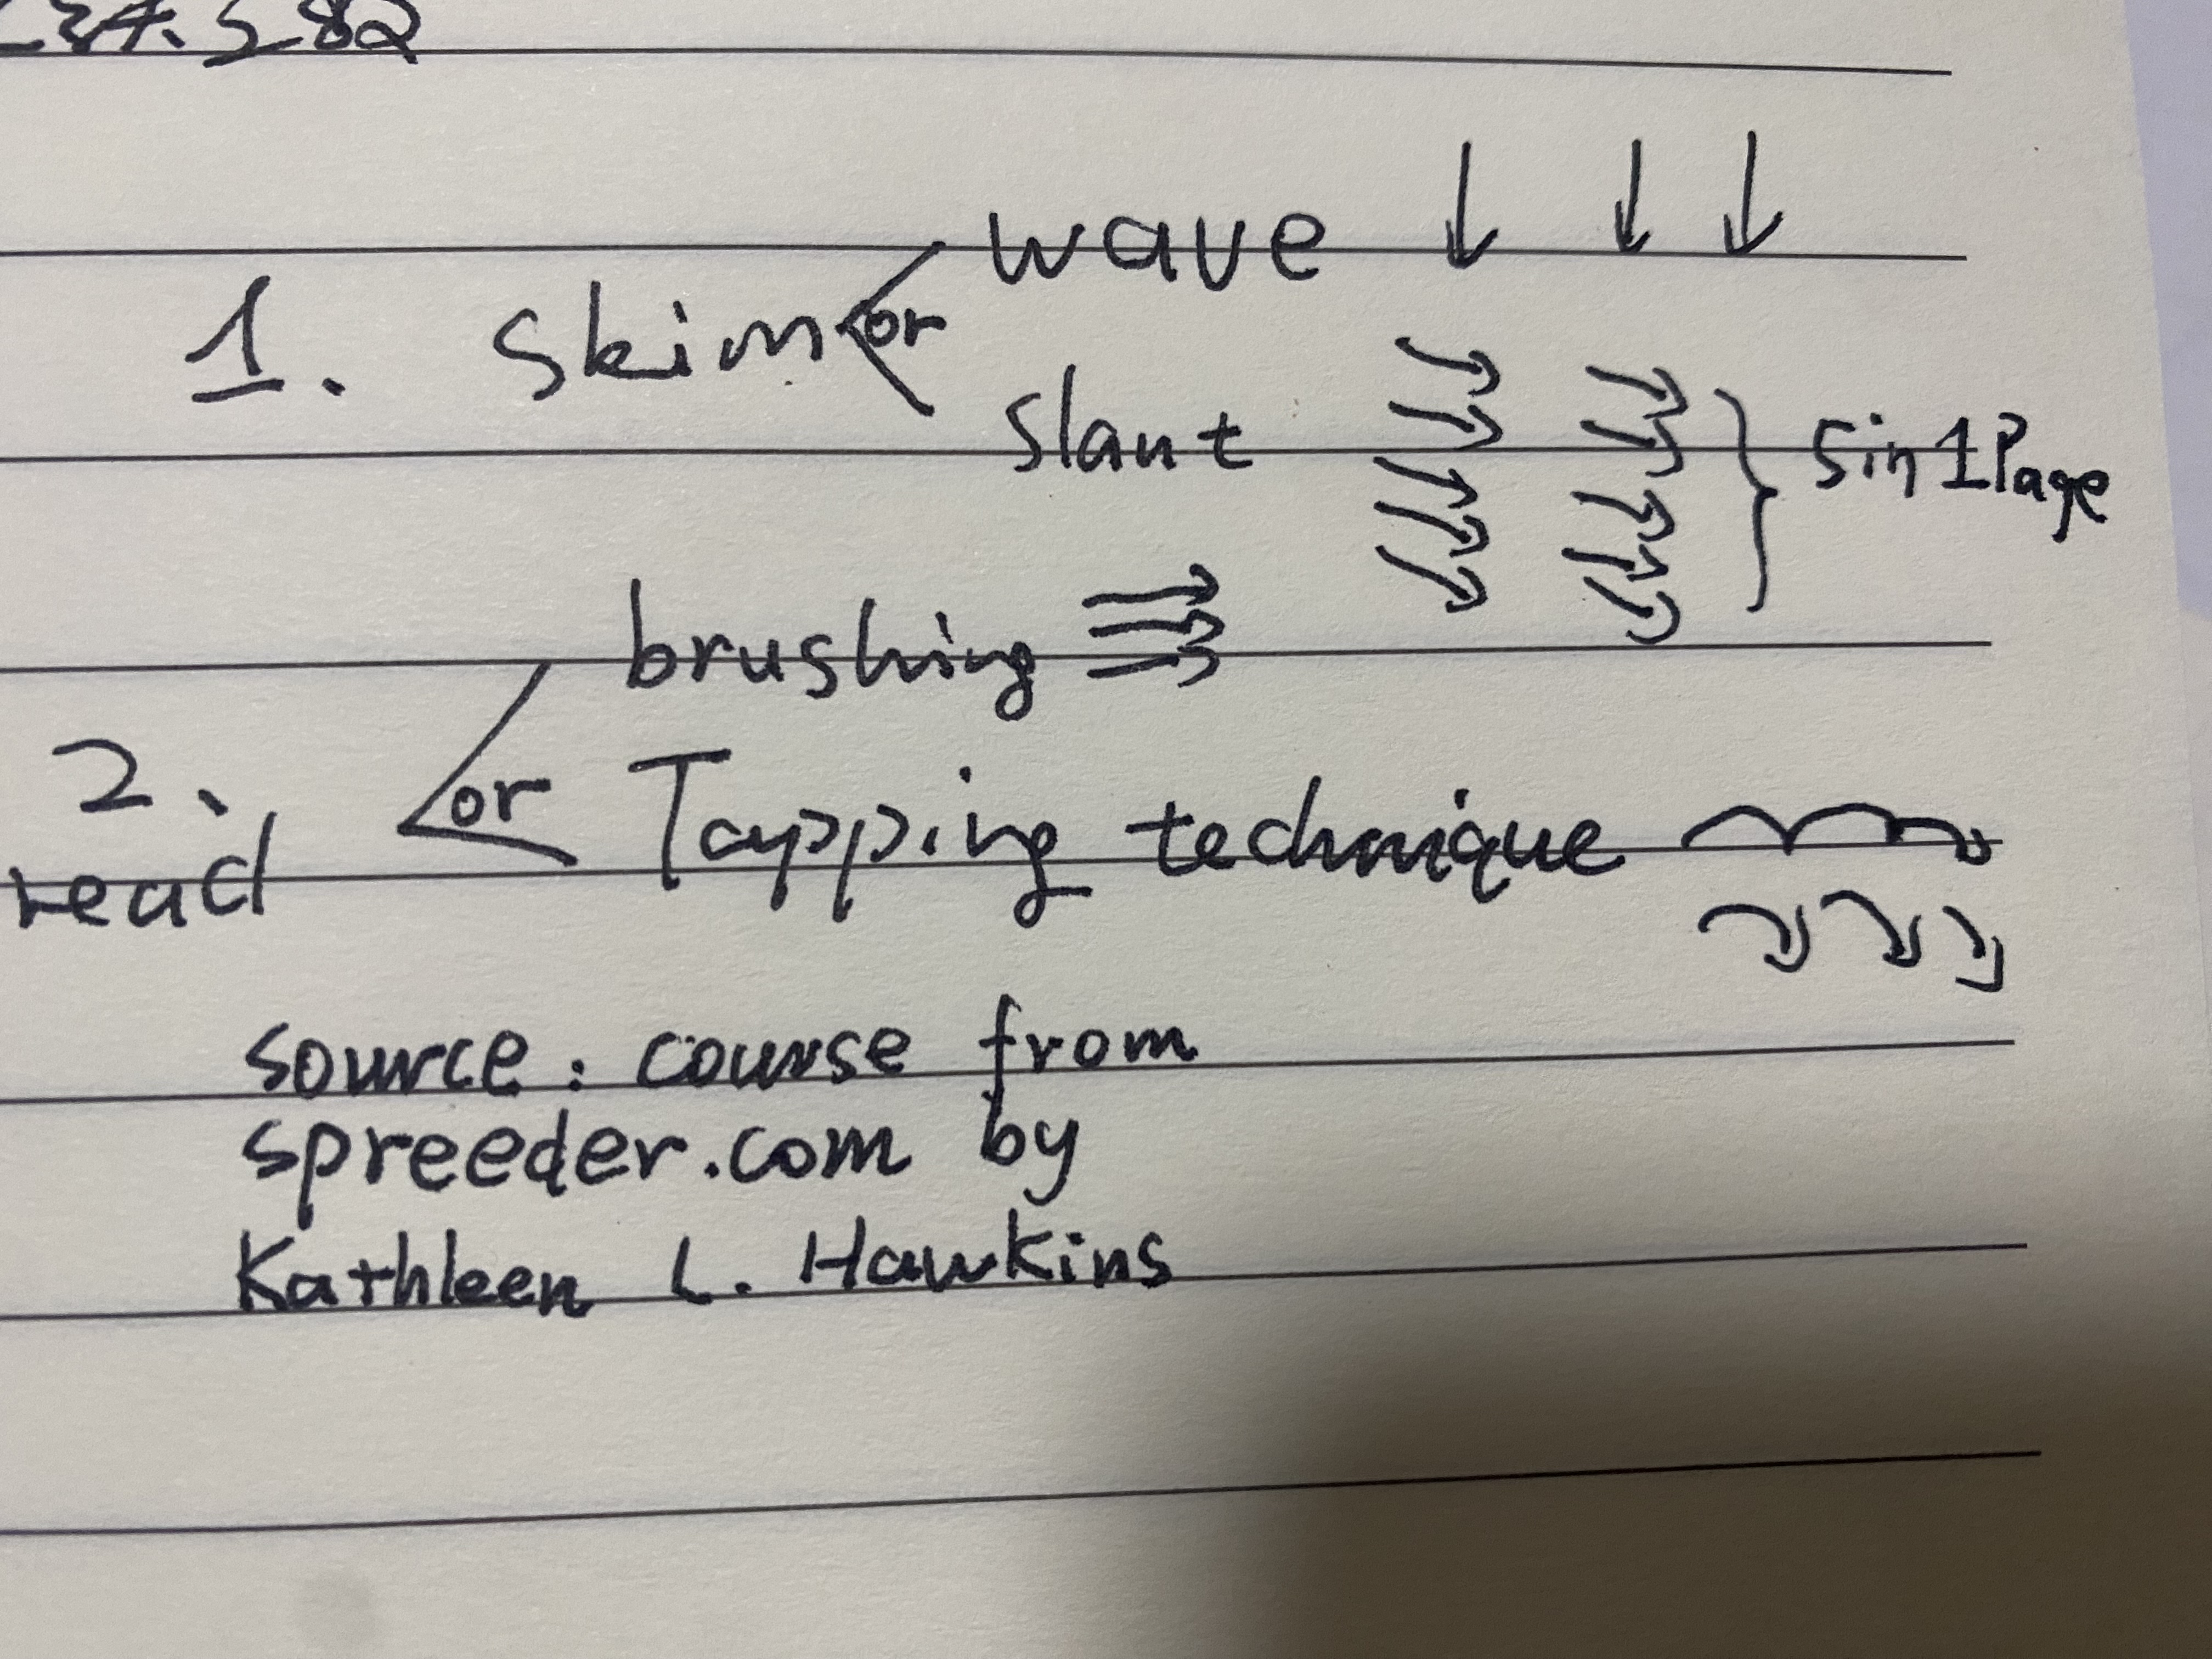 wave ↓ ↓ ↓
1. Skim or
slant
5 in 1 Page
brushing
2. or Tapping technique
read
source : course from
spreeder.com by
Kathleen L. Hawkins